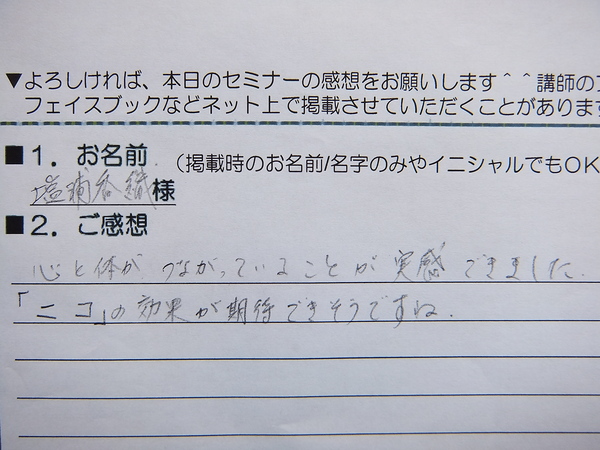 ▼よろしければ、本日のセミナーの感想をお願いします＾＾講師の
フェイスブックなどネット上で掲載させていただくことがあります
■１．お名前 （掲載時のお名前/名字のみやイニシャルでもOK
塩浦香織様
■２．ご感想
心と体が つながっていることが 実感 できました.
「ニコ」の効果が期待できそうですね.